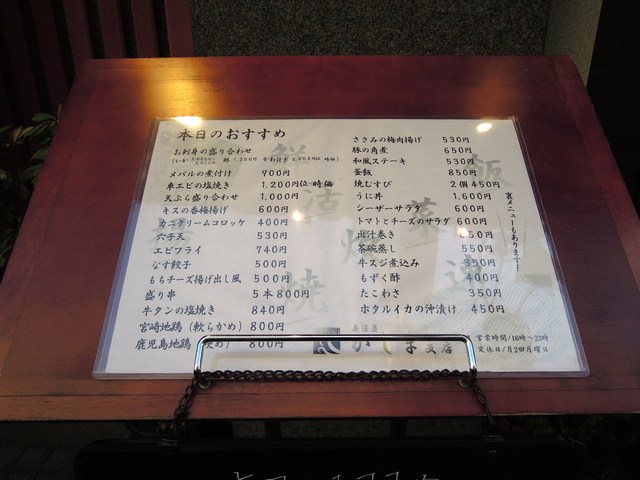 本日のおすすめ
お刺身の盛り合わせ
メバルの煮付け 700円
車エビの塩焼き 1,200円位 時価
天ぷら盛り合わせ 1,000円
キスの香梅揚げ 600円
カニクリームコロッケ 400円
穴子天 530円
エビフライ 740円
なす餃子 500円
もちチーズ揚げ出し風 500円
盛り串 5本800円
牛タンの塩焼き 840円
宮崎地鶏(軟らかめ) 800円
鹿児島地鶏 800円
ささみの梅肉揚げ 530円
豚の角煮 650円
和風ステーキ 530円
釜飯 850円
焼むすび 2個450円
うに丼 1,600円
シーザーサラダ 600円
トマトとチーズのサラダ 600円
出汁巻き
茶碗蒸し 550円
牛スジ煮込み 350円
もずく酢 400円
たこわさ 350円
ホタルイカの沖漬け 450円
裏メニューもあります!
居酒屋
支店
営業時間/16時~23時
定休日/月2回月曜日